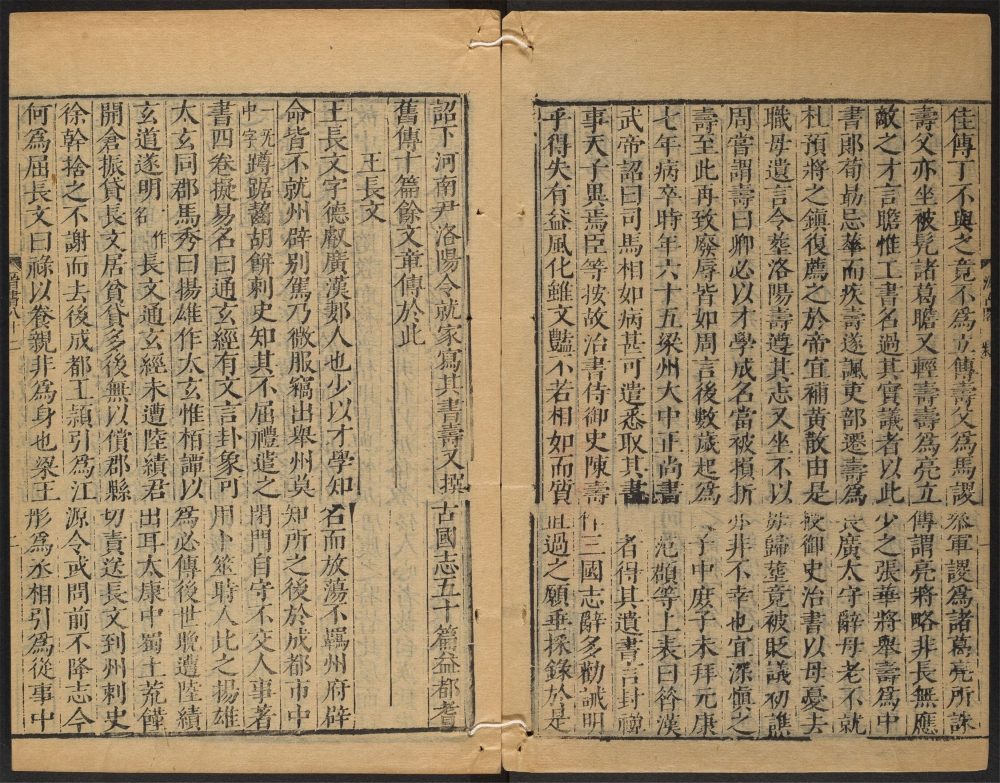 佳傳丁不與之竟不為立傳壽父為馬謖參軍謖為諸葛亮所誅
壽父亦坐被髡諸葛瞻又輕壽壽為亮立傳謂亮將略非長無應
敵之才言瞻惟工書名過其實議者以此少之張華將舉壽為中
書郎荀勖忌華而疾壽遂諷吏部遷壽為長廣太守辭母老不就
札預將之鎮復薦之於帝宜補黃散由是授御史治書以母憂去
職母遺言令葬洛陽壽遵其志又坐不以母歸葬竟被貶議初譙
周嘗謂壽曰卿必以才學成名當被損折亦非不幸也宜深慎之
壽至此再致廢辱皆如周言後數歲起為子中庶子未拜元康
七年病卒時年六十五梁州大中正尚書范頵等上表曰昝漢
武帝詔曰司馬相如病甚可遣悉取其書者得其遺書言封禪
事天子異焉臣等按故治書侍御史陳壽作三國志辭多勸誡明
乎得失有益風化雖文豔不若相如而質直過之願垂採錄於是
詔下河南尹洛陽令就家寫其書壽又撰古國志五十篇益都耆
舊傳十篇餘文章傳於此
王長文
王長文字德叡廣漢郪人也少以才學知名而放蕩不羈州府辟
命皆不就州辟別駕乃微服竊出舉州莫知所之後於成都市中
一无中字蹲踞齧胡餅刺史知其不屈禮遣之閉門自守不交人事著
書四卷擬易名曰通玄經有文言卦象可用卜筮時人比之揚雄
太玄同郡馬秀曰揚雄作太玄惟栢譚以為必傳後世晚遭陸績
玄道遂明作長文通玄經未遭陸績君出耳太康中蜀土荒饉
開倉振貸長文居貧貸多後無以償郡縣切責送長文到州刺史
徐幹捨之不謝而去後成都王頴引為江源令或問前不降志今
何為屈長文曰祿以養親非為身也梁王肜為丞相引為從事中
晉書八十二